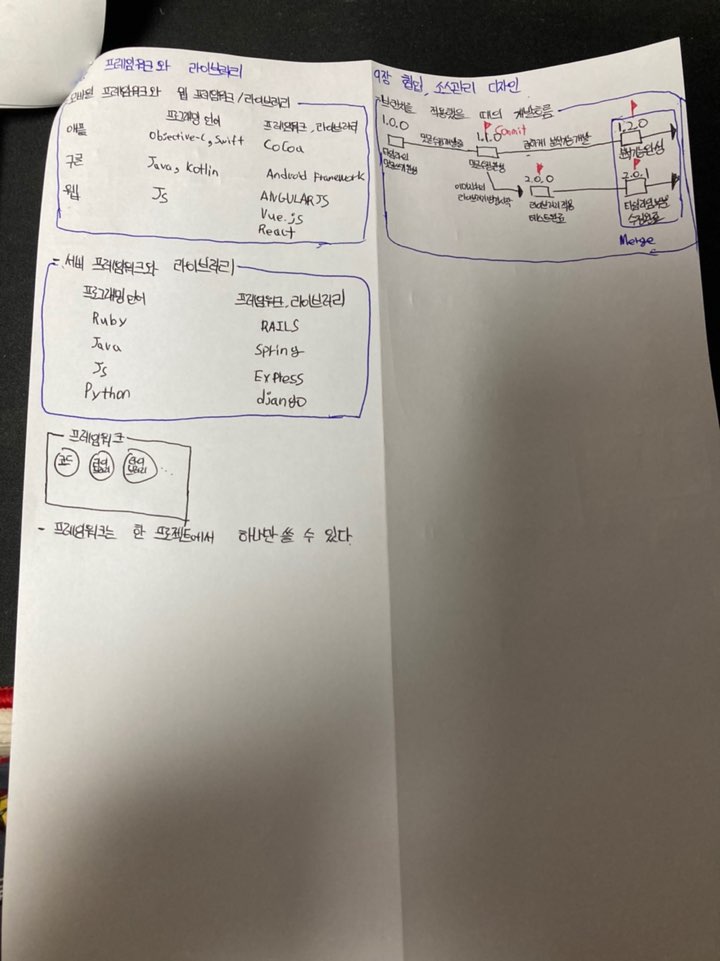 프레임워크와 라이브러리
모바일 프레임워크와 웹 프레임워크/라이브러리
프로그래밍 언어 프레임워크, 라이브러리
애플 Objective-C, Swift Cocoa
구글 Java, Kotlin Android Framework
웹 Js ANGULARJS
Vue.js
React
서버 프레임워크와 라이브러리
프로그래밍 언어 프레임워크, 라이브러리
Ruby RAILS
Java Spring
Js Express
Python django
프레임워크
코드 라이브러리 라이브러리 ...
- 프레임워크는 한 프로젝트에서 하나만 쓸 수 있다.
9장 협업, 소스관리 디자인
브랜치를 적용했을 때의 개발흐름
1.0.0
1.1.0 Commit
1.2.0
2.0.0
라이브러리 적용
테스트완료
2.0.1
수정완료
Merge